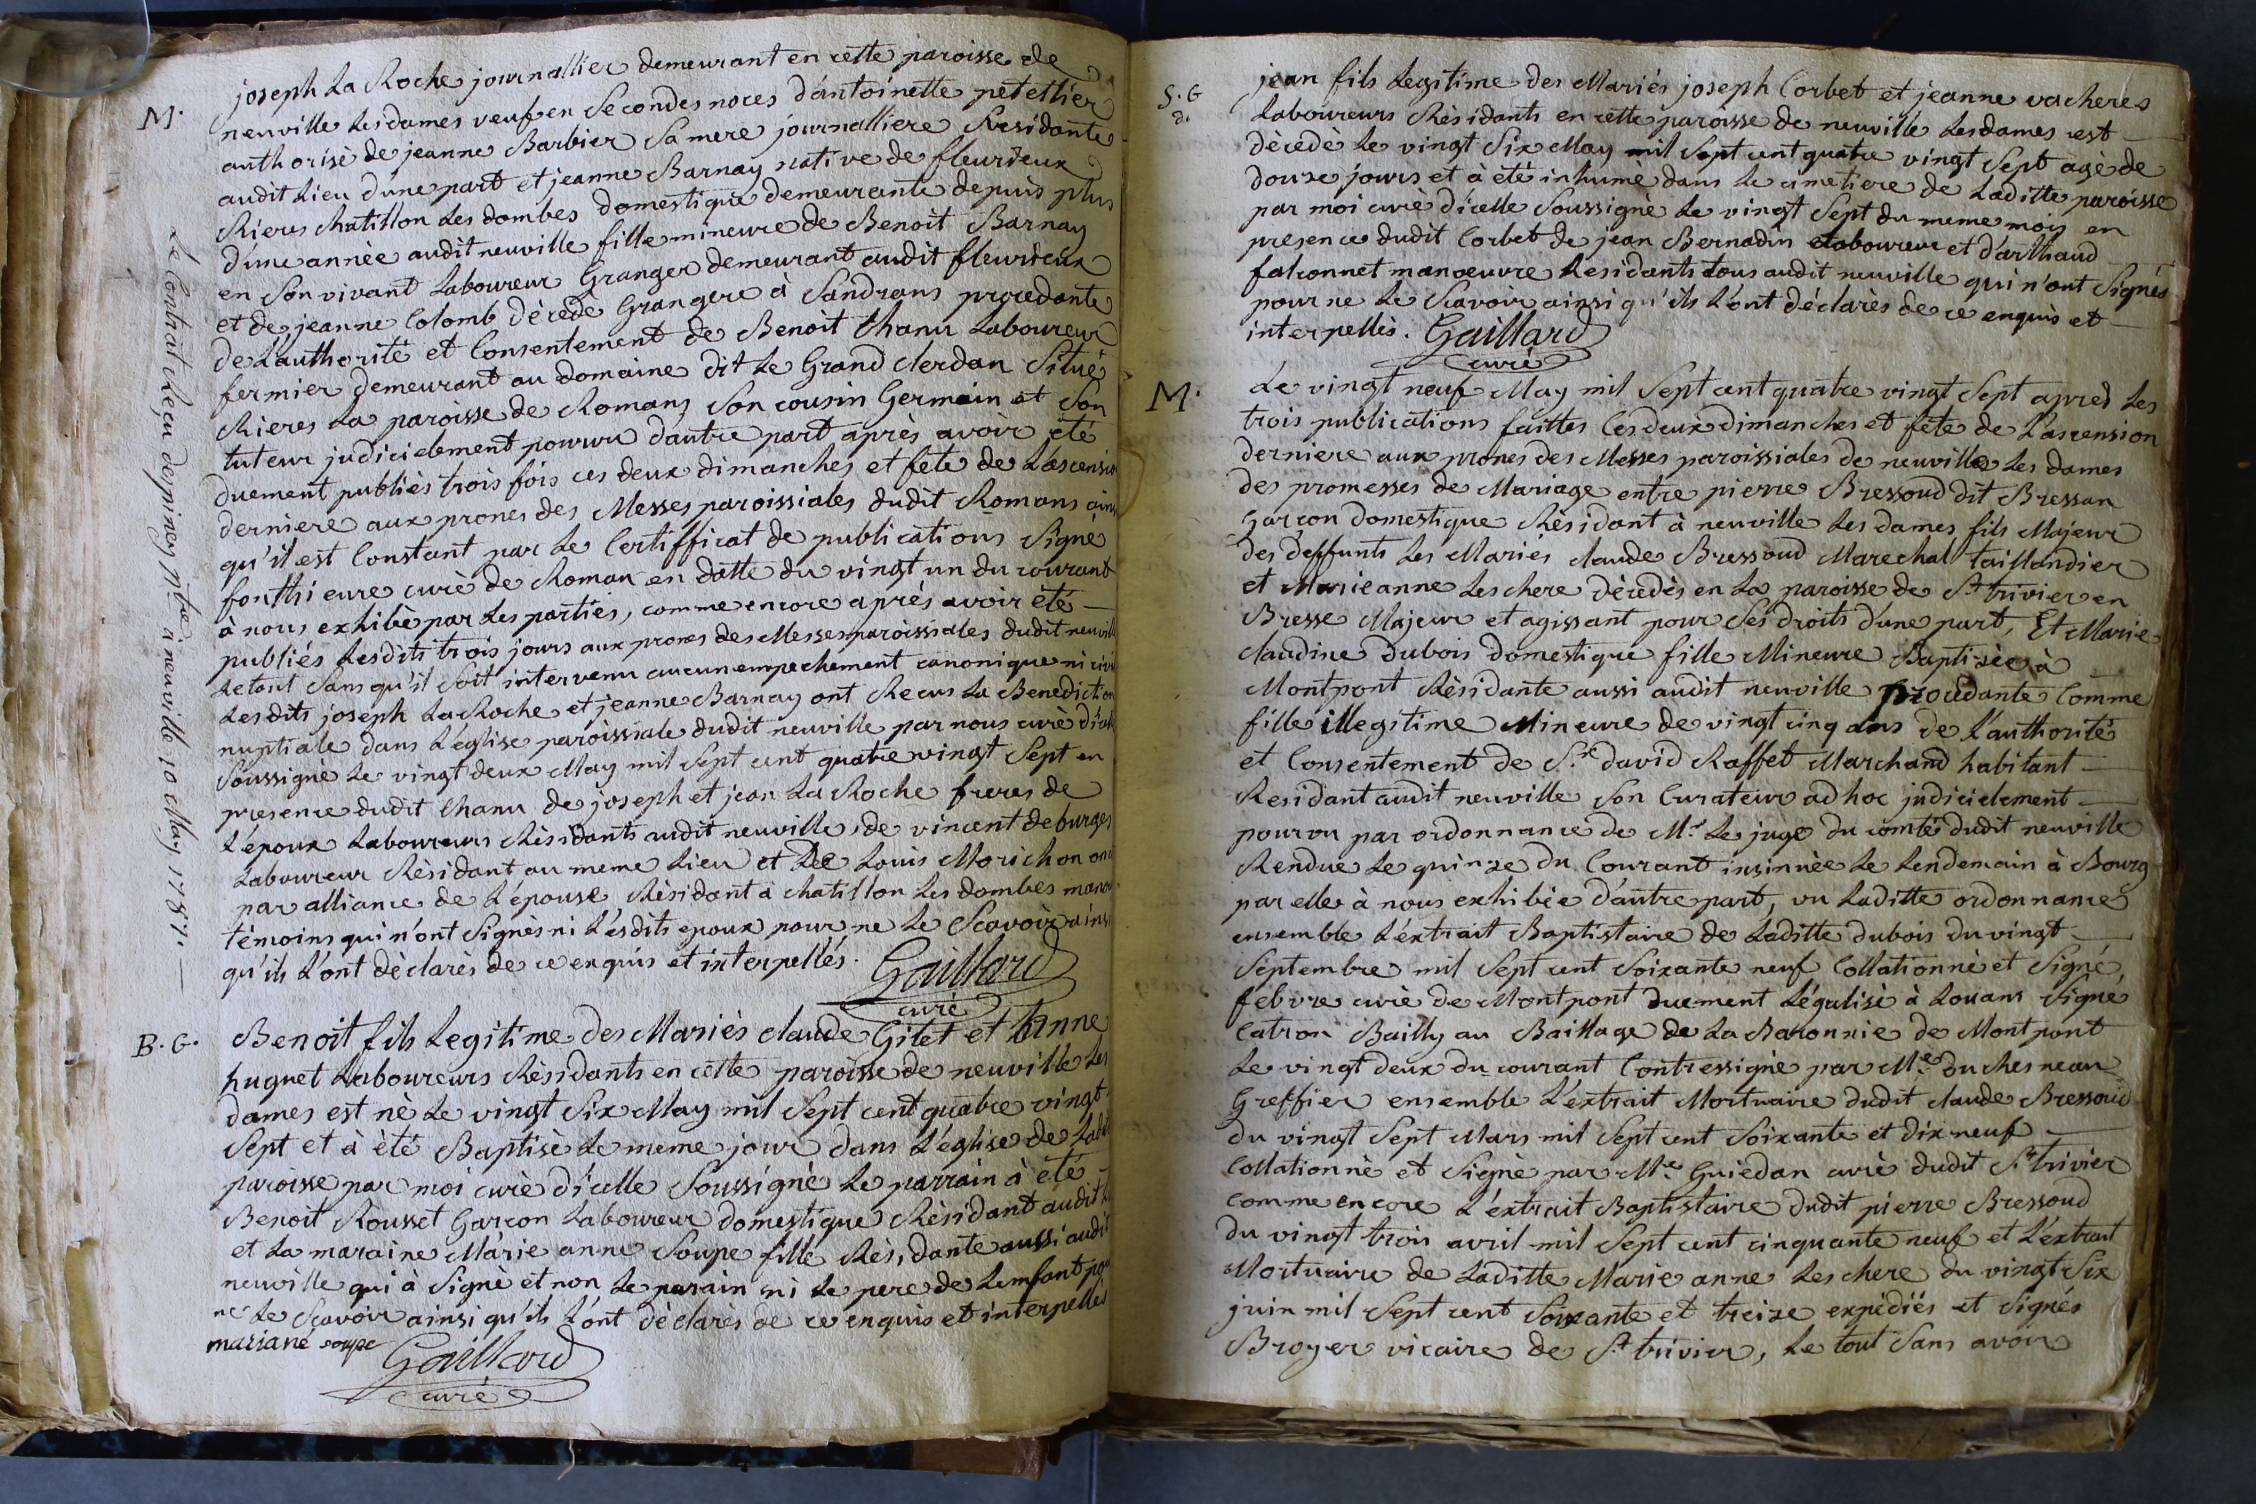 M.
joseph La Roche journallier demeurant en cette paroisse de
neuville Les dames veuf en Secondes noces d'antoinette petellier
authorisè de jeanne Barbier Sa mere journalliere Residante
audit Lieu d'une part et jeanne Barnay native de fleurieux
Rieres chatillon Les dombes domestique demeurante depuis plus
d'une annèe audit neuville fille mineure de Benoit Barnay
en Son vivant Laboureur Granger demeurant audit fleurieux
et de jeanne Colomb décedè Grangere à Sandrans procedante
de L'authorité et Consentement de Benoit Chanu Laboureur
fermier demeurant au domaine dit Le Grand Clerdan Situé
Rieres La paroisse de Romans Son cousin Germain et Son
tuteur judicielement pourvu d'autre part après avoir été
duement publiès trois fois ces deux dimanches et fete de L'ascensio
derniere aux prones des Messes paroissiales dudit Romans ains
qu'il est Constant par Le Certifficat de publications Signé
fonthieure curè de Roman en datte du vingt un du courant
à nous exhibè par Les parties, comme encore après avoir été
publiés Lesdits trois jours aux prones des Messes paroissiales dudit neuville
Le tout Sans qu'il Soit intervenu aucun empechement canonique ni civil
Les dits joseph La Roche et jeanne Barnay ont Recus La Benediction
nuptiale dans L'église paroissiale dudit neuville par nous curè d'icelle
Soussignè Le vingt deux May mil Sept cent quatre vingt Sept en
presence dudit Chanu de joseph et jean La Roche freres de
L'époux Laboureurs Rèsidants audit neuville, de vincent deburges
Laboureur Rèsidant au meme Lieu et de Louis Morichon onc
par alliance de L'épouse Rèsidant à chatillon Les dombes manoe
témoins qui n'ont Signès ni Lesdits epoux pour ne Le Scavoir ains
qu'ils L'ont dèclarès de ce enquis et interpellés. Gaillard
curé
Le Contrat Reçu depiney ptre à neuville 10 May 1787.
B. G.
Benoit fils Legitime des Mariès claude Gitet et Anne
huguet Laboureurs Rèsidants en cette paroisse de neuville Les
dames est nè Le vingt Six May mil Sept cent quatre vingt
Sept et à ètè Baptisè Le meme jour dans L'église de Ladit
paroisse par moi curè d'icelle Soussignè Le parrain à été
Benoit Rousset Garcon Laboureur domestique Rèsidant audit L
et La maraine Marie anne Soupe fille Rèsidante aussi audit
neuville qui à Signè et non Le parain ni Le pere de L'enfant pou
ne Le Scavoir ainsi qu'ils L'ont dèclarès de ce enquis et interpellés
mariané soupe Gaillard
curé
S. G
jean fils Legitime des Mariés joseph Corbet et jeanne vacheres
Laboureurs Rèsidants en cette paroisse de neuville Les dames est
dècèdè Le vingt Six May mil Sept cent quatre vingt Sept agè de
douze jours et à été inhumé dans Le cimetiere de Laditte paroisse
par moi curè d'icelle Soussignè Le vingt Sept du meme mois en
presence dudit Corbet de jean Bernadin Laboureur et d'arthaud
falconnet manoeuvre Residants tous audit neuville qui n'ont Signés
pour ne Le Scavoir ainsi qu'ils L'ont déclarès de ce enquis et
interpellès. Gaillard
curè
M.
Le vingt neuf May mil Sept cent quatre vingt Sept apres Les
trois publications faittes Les deux dimanches et fete de L'ascension
derniere aux prones des Messes paroissiales de neuville Les dames
des promesses de Mariage entre pierre Bressoud dit Bressan
Garcon domestique Rèsidant à neuville Les dames fils Majeur
des deffunts Les Mariés claude Bressoud Marechal taillandier
et Marieanne Leschere dècedès en La paroisse de St trivier en
Bresse Majeur et agissant pour Ses droits d'une part, Et Marie
claudine Dubois domestique fille Mineure Baptisèe à
Montpont Rèsidante aussi audit neuville procedante Comme
fille illegitime Mineure de vingt cinq ans de L'authorité
et Consentement de Sr. david Raffet Marchand habitant
Residant audit neuville Son Curateur ad hoc judicielement
pourvu par ordonnance de Mr. Le juge du comté dudit neuville
Rendue Le quinze du Courant insinuèe Le Lendemain à Bourg
par elle à nous exhibèe d'autre part, vu Laditte ordonnance
ensemble L'éxtrait Baptistaire de Laditte dubois du vingt
Septembre mil Sept cent Soixante neuf Collationné et Signé,
febvre curè de Montpont duement Légalisè à Louans Signé
Catron Bailly au Baillage de La Baronnie de Montpont
Le vingt deux du courant Contressignè par Me. Duchesneau
Greffier ensemble L'extrait Mortuaire dudit claude Bressoud
du vingt Sept Mars mil Sept cent Soixante et dix neuf
Collationnè et Signè par Me. Guiedan curè dudit St trivier
comme encore L'éxtrait Baptistaire dudit pierre Bressoud
du vingt trois avril mil Sept cent cinquante neuf et L'éxtrait
Mortuaire de Laditte Marie anne Leschere du vingt Six
juin mil Sept cent Soixante et treize expèdiés et Signés
Broyer vicaire de St trivier, Le tout Sans avoir